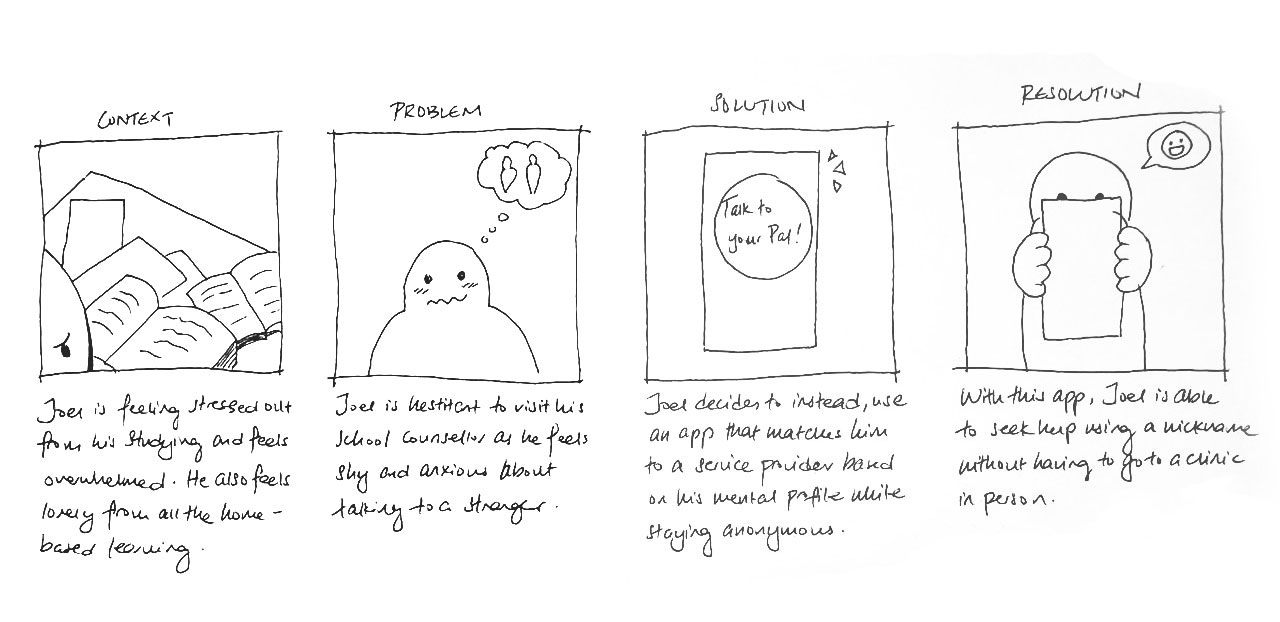 CONTEXT
Joel is feeling stressed out
from his studying and feels
overwhelmed. He also feels
lonely from all the home-
based learning.
PROBLEM
Joel is hestitant to visit his
school counsellor as he feels
shy and anxious about
talking to a stranger.
SOLUTION
Talk to
your Pal!
Joel decides to instead, use
an app that matches him
to a service provider based
on his mental profile while
staying anonymous.
RESOLUTION
With this app, Joel is able
to seek help using a nickname
without having to go to a clinic
in person.